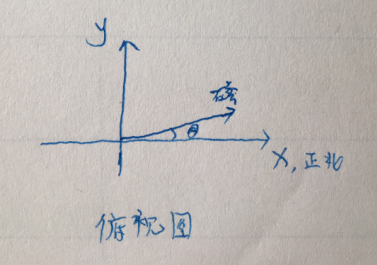 y
磁
θ
X, 正北
俯视图